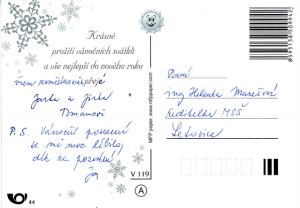 Krásné
prožití vánočních svátků
a vše nejlepší do nového roku
všem pracovníkům přeje
Jarka a Jirka
Tomanovi
P.S. Vánoční posezení
se mi moc líbilo,
dík za pozvání
MFP paper, www.mfppaper.com
V 119
A
44
Paní
Ing Helena Marešová
ředitelka MSŠ
Letovice